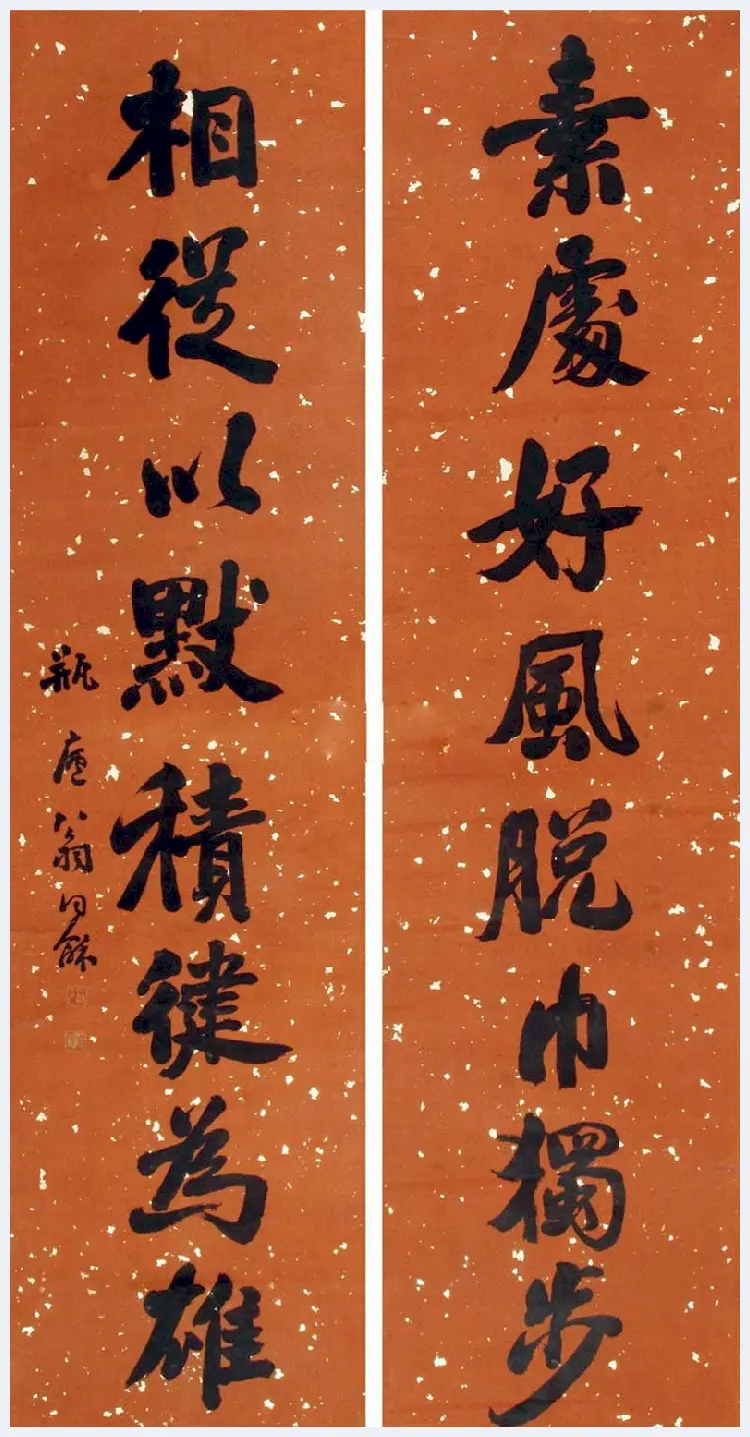 素處好風脫巾獨步
相從以默積健為雄
瓶廬翁同龢